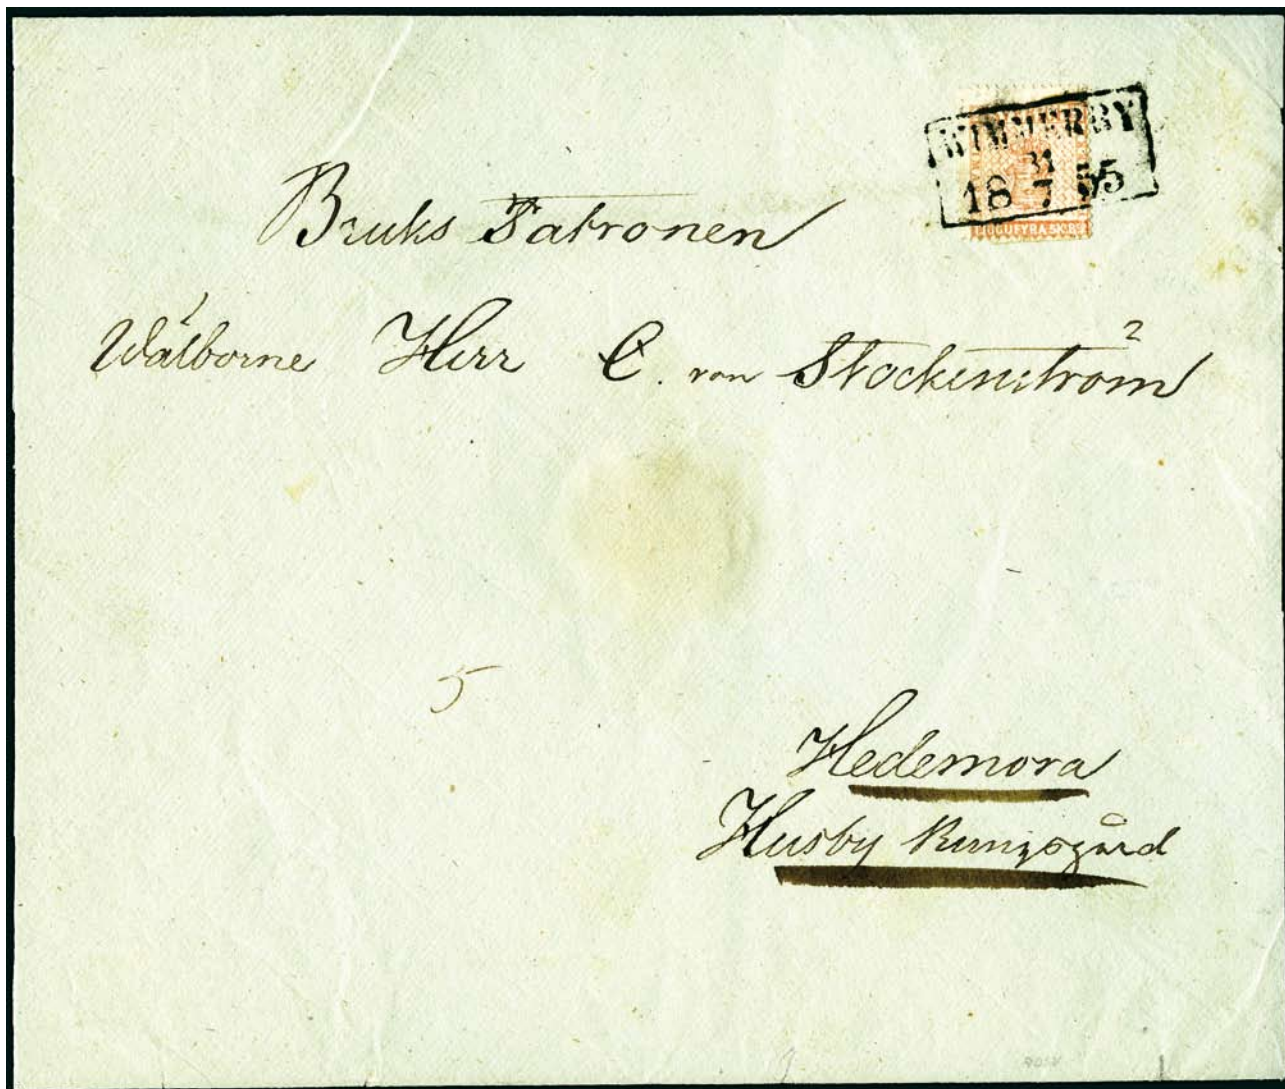 WIMMERBY
31
18 7 55
TJUGUFYRA SK. BCO
Bruks Patronen
Wälborne Herr C. von Stockenström
5
Hedemora
Husby Kungsgård